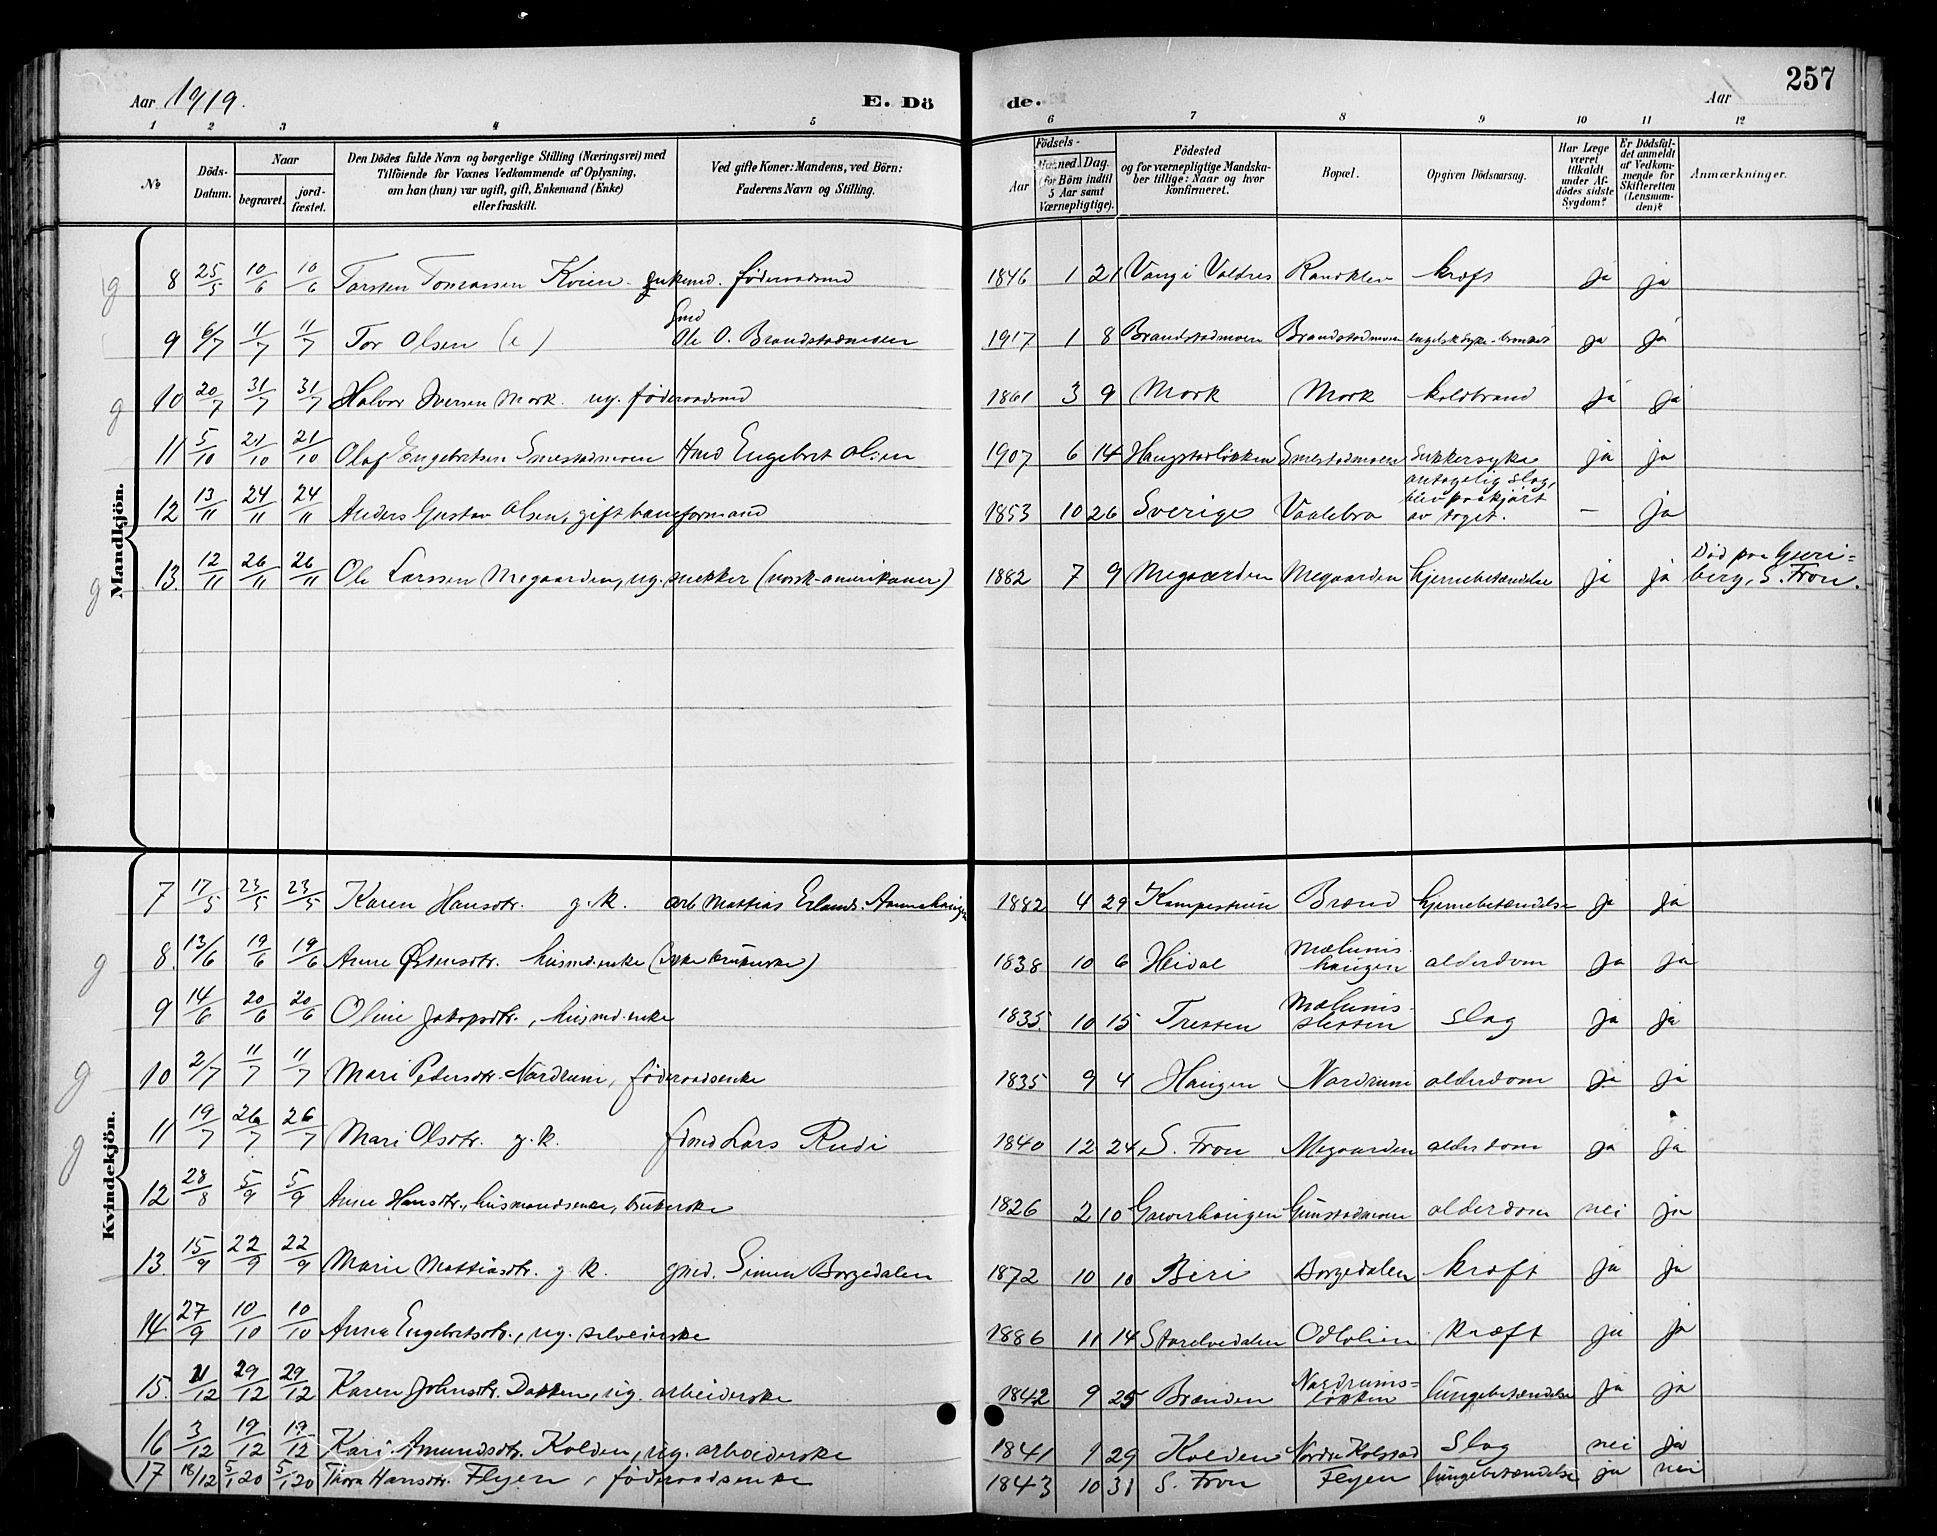 Aar 1919. E. Dö de. Aar 257
1 2 3 4 5 6 7 8 9 10 11 12
No Döds-Datum. Naar begravet. jord-fæstet. Den Dödes fulde Navn og borgerlige Stilling (Næringsvei) med Tilföiende for Voxnes Vedkommende af Oplysning, om han (hun) var ugift, gift, Enkemand (Enke) eller fraskilt. Ved gifte Koner: Mandens, ved Börn: Faderens Navn og Stilling. Födsels- Aar Maaned. Dag. (for Börn indtil 5 Aar samt Værnepligtige). Födested og for værnepligtige Mandskaber tillige: Naar og hvor konfirmeret. Bopæl. Opgiven Dödsaarsag. Har Læge været tilkaldt under Afdödes sidste Sygdom? Er Dödsfaldet anmeldt af Vedkommende for Skifteretten (Lensmanden)? Anmærkninger.
Mandkjön.
g 8 25/5 10/6 10/6 Torsten Tomassen Kvien enkemd. föderaadsmd 1846 1 21 Vang i Valdres Ranklev kræft ja ja
9 6/7 11/7 11/7 Tor Olsen (e) Gmd Ole O. Brandstadmoen 1917 1 8 Brandstadmoen Brandstadmoen engelsksyke - bronkit ja ja
g 10 20/7 31/7 31/7 Halvor Iversen Mork. ug. föderaadsmd 1861 3 9 Mork Mork koldbrand ja ja
11 5/10 21/10 21/10 Olaf Engebretsen Smestadmoen Hmd Engebret Olsen 1907 6 14 Haugstadløkken Smestadmoen sukkersyke ja ja
12 13/11 24/11 24/11 Anders Gustav Olsen, gift baneformand 1853 10 26 Sverige Vaalebro antagelig slag, blev paakjørt av toget. — ja
g 13. 12/11 26/11 26/11 Ole Larssen Megaarden, ug. snekker (norsk-amerikaner) 1882 7 9 Megaarden Megaarden hjernebetændelse ja ja Død paa -berg, S. Fron.
Kvindekjön.
7 17/5 23/5 23/5 Karen Hansdtr. g. k. arb. Mattias Erlands. 1882 4 29 Kampestuen Brænd hjernebetændelse ja ja
g 8. 13/6 19/6 19/6 Anne Østensdtr. husmd.enke (ikke brukerske) 1838 10 6 Heidal Mælumshaugen alderdom ja ja
9 14/6 20/6 20/6 Oline Jakopsdtr., husmd.enke 1835 10 15 Tretten Mælumsslettten slag ja ja
g 10 2/7 11/7 11/7 Mari Pedersdtr. Nordrum, föderaadsenke 1835 9 4 Haugen Nordrum alderdom ja ja
g 11 19/7 26/7 26/7 Mari Olsdtr. g. k. fdmd Lars Rudi 1840 12 24 S. Fron Megaarden alderdom ja ja
12 28/8 5/9 5/9 Anne Hansdtr., husmandsenke, brukerske 1826 2 10 Gunstadmoen alderdom nei ja
13. 15/9 22/9 22/9 Marie Mattiasdtr. g. k. gmd. Simen Borgedalen 1872 10 10 Biri Borgedalen kræft ja ja
14 27/9 10/10 10/10 Anna Engebretsdtr., ug. selveierske 1886 11 14 Storelvedalen Odlolien kræft ja ja
15. 21/12 29/12 29/12 Karen Johnsdtr. Dakken, ug. arbeiderske 1842 9 25 Brænden Nordrumsløkken lungebetændelse ja ja
16 3/12 19/12 19/12 Kari Amundsdtr. Kolden, ug. arbeiderske 1841 1 29 Kolden Nordre Kolstad Slag nei ja
17 18/12 5/1 20 5/1 20 Thora Hansdtr. Flyen, föderaadsenke 1843 10 31 S. Fron Flyen lungebetændelse ja nei